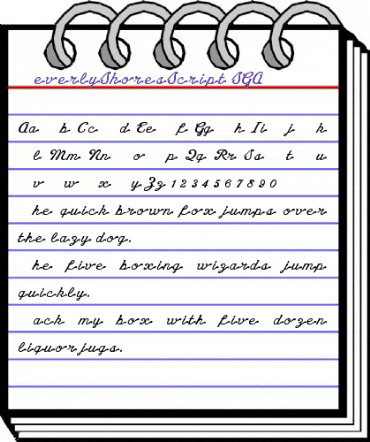 everlyShoresScript SGA
Aa b Cc d Ee f Gg h Ii j k
l Mm Nn o p Qq Rr Ss t u
v w x y Zz 1 2 3 4 5 6 7 8 9 0
he quick brown fox jumps over
the lazy dog.
he five boxing wizards jump
quickly.
ack my box with five dozen
liquor jugs.